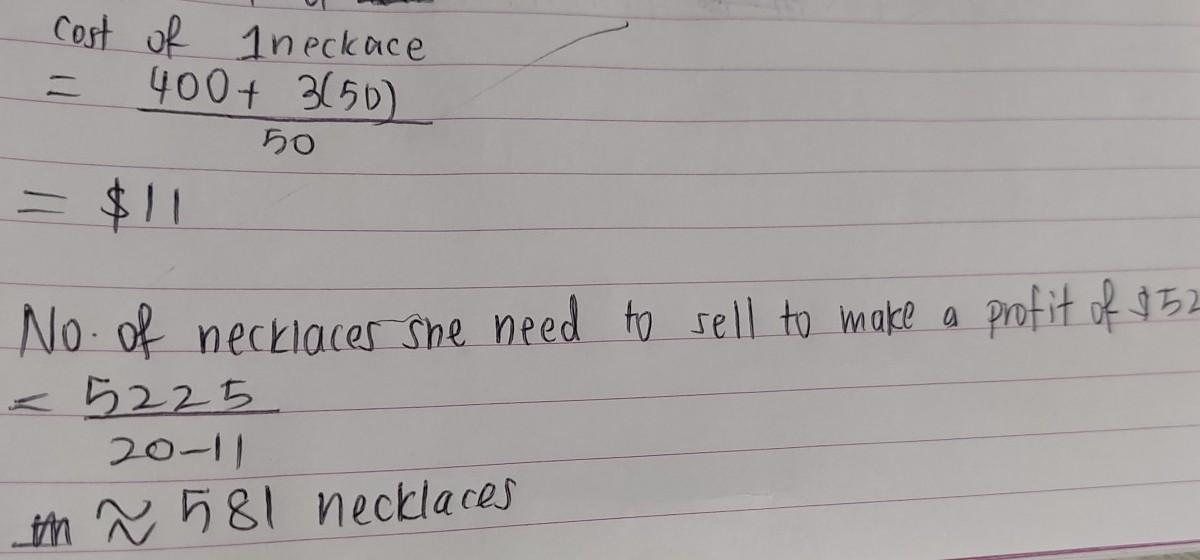 Cost of 1 neckace
= 400 + 3(50)
50
= $11
No. of necklaces she need to sell to make a profit of $52
= 5225
20-11
≈ 581 necklaces